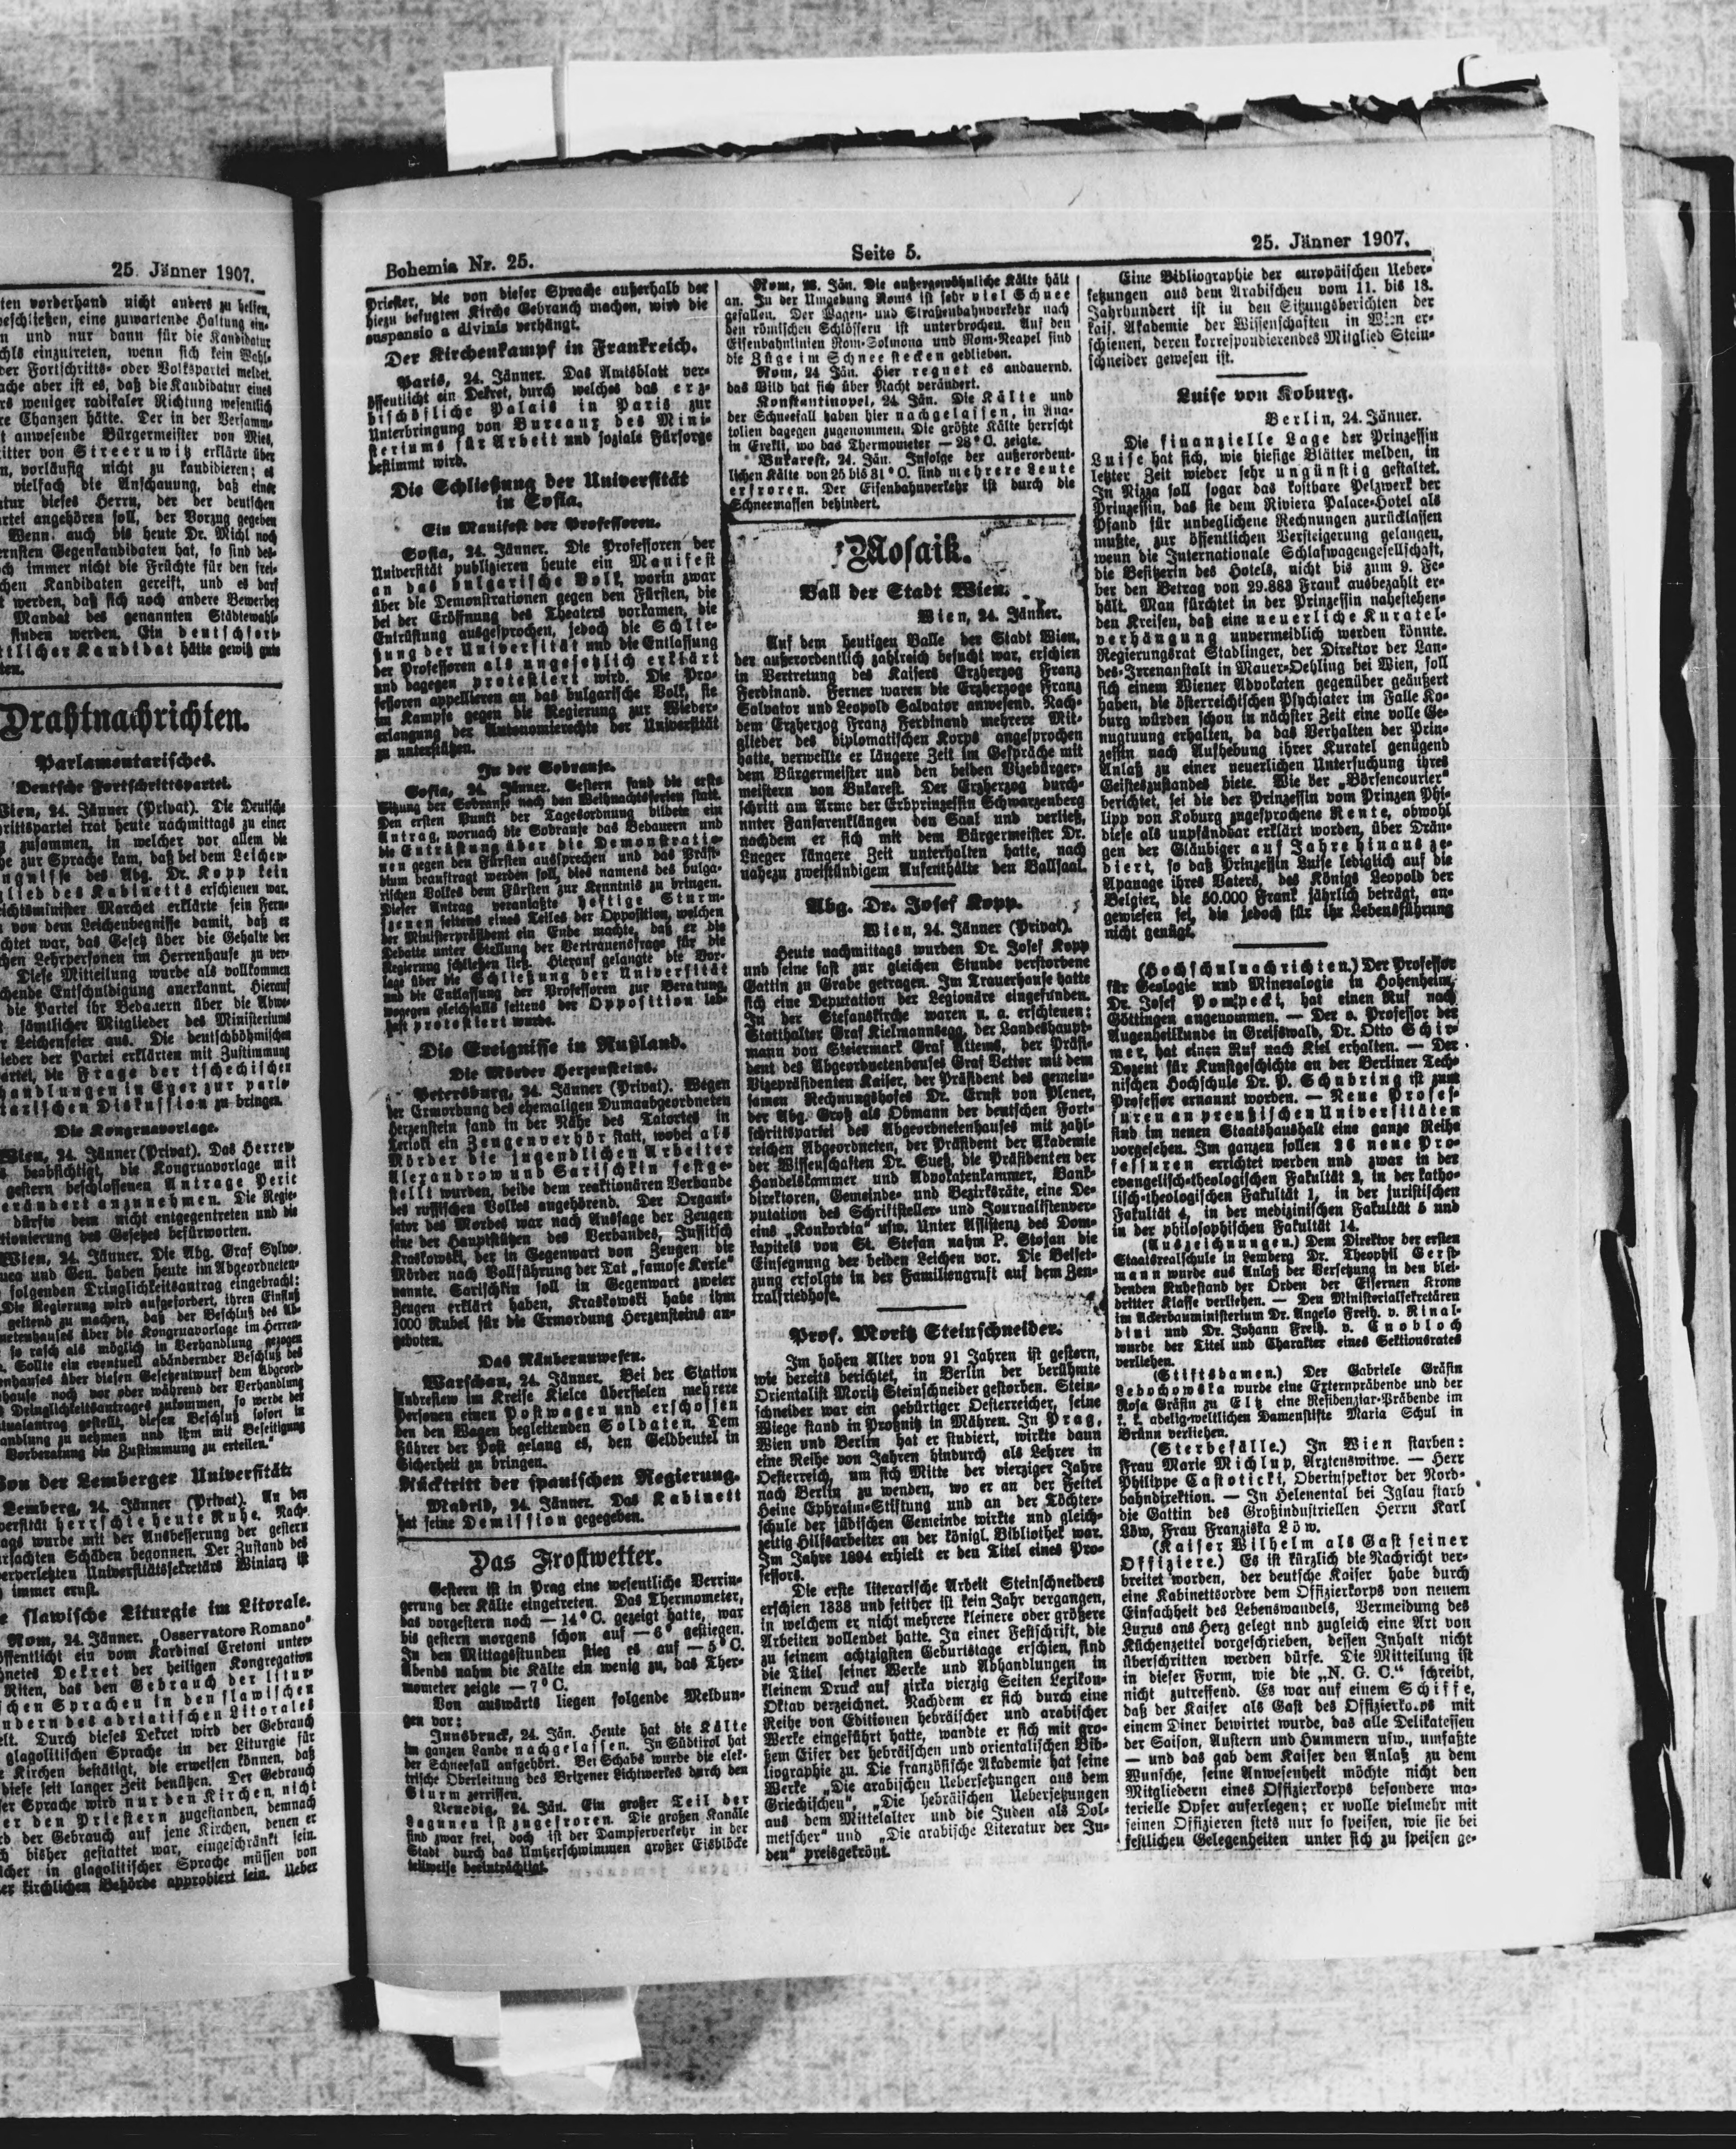 25. Jänner 1907.
ten vorderhand nicht anders zu helfen,
beschließen, eine zuwartende Haltung ein-
n und nur dann für die Kandidatur
chls einzutreten, wenn sich kein Wahl-
der Fortschritts- oder Volkspartei meldet.
ache aber ist es, daß die Kandidatur eines
rs weniger radikaler Richtung wesentlich
re Chanzen hätte. Der in der Versamm-
t anwesende Bürgermeister von Mies,
itter von Streeruwitz erklärte über
n, vorläufig nicht zu kandidieren; es
vielfach die Anschauung, daß einer
atur dieses Herrn, der der deutschen
artei angehören soll, der Vorzug gegeben
Wenn auch bis heute Dr. Michl noch
ernsten Gegenkandidaten hat, so sind des-
och immer nicht die Früchte für den frei-
chen Kandidaten gereift, und es darf
t werden, daß sich noch andere Bewerber
Mandat des genannten Städtewahl-
finden werden. Ein deutschfort-
ttlicher Kandidat hätte gewiß gute
ten.
Drahtnachrichten.
Parlamentarisches.
Deutsche Fortschrittspartei.
Wien, 24. Jänner (Privat). Die Deutsche
rittspartei trat heute nachmittags zu einer
zusammen, in welcher vor allem die
he zur Sprache kam, daß bei dem Leichen-
ngnisse des Abg. Dr. Kopp kein
glied des Kabinetts erschienen war.
richtsminister Marchet erklärte sein Fern-
von dem Leichenbegnisse damit, daß er
chtet war, das Gesetz über die Gehalte der
chen Lehrpersonen im Herrenhause zu ver-
Diese Mitteilung wurde als vollkommen
chende Entschuldigung anerkannt. Hierauf
die Partei ihr Bedauern über die Abwe-
sämtlicher Mitglieder des Ministeriums
r Leichenfeier aus. Die deutschböhmischen
ieder der Partei erklärten mit Zustimmung
artei, die Frage der tschechischen
handlungen in Eger zur parla-
tarischen Diskussion zu bringen.
Die Kongruavorlage.
Wien, 24. Jänner (Privat). Das Herren-
beabsichtigt, die Kongruavorlage mit
gestern beschlossenen Antrage Peric
erändert anzunehmen. Die Regie-
dürfte dem nicht entgegentreten und die
tionierung des Gesetzes befürworten.
Wien, 24. Jänner. Die Abg. Graf Sylva-
uca und Gen. haben heute im Abgeordneten-
folgenden Dringlichkeitsantrag eingebracht:
„Die Regierung wird aufgefordert, ihren Einfluß
geltend zu machen, daß der Beschluß des Ab-
netenhauses über die Kongruavorlage im Herren-
so rasch als möglich in Verhandlung gezogen
. Sollte ein eventuell abändernder Beschluß des
enhauses über diesen Gesetzentwurf dem Abgeord-
nhause noch vor oder während der Verhandlung
Dringlichkeitsantrages zukommen, so werde der
tualantrag gestellt, diesen Beschluß sofort in
andlung zu nehmen und ihm mit Beseitigung
Vorberatung die Zustimmung zu erteilen.“
Von der Lemberger Universität.
Lemberg, 24. Jänner (Privat). An der
versität herrschte heute Ruhe. Nach-
ags wurde mit der Ausbesserung der gestern
rsachten Schäden begonnen. Der Zustand des
erverletzten Universitätssekretärs Winiarz ist
immer ernst.
e slawische Liturgie im Litorale.
Rom, 24. Jänner. „Osservatore Romano“
öffentlicht ein vom Kardinal Cretoni unter-
hnetes Dekret der heiligen Kongregation
Riten, das den Gebrauch der litur-
schen Sprachen in den slawischen
ndern des adriatischen Litorales
elt. Durch dieses Dekret wird der Gebrauch
glagolitischen Sprache in der Liturgie für
Kirchen bestätigt, die erweisen können, daß
diese seit langer Zeit benützen. Der Gebrauch
ser Sprache wird nur den Kirchen, nicht
er den Priestern zugestanden, demnach
rd der Gebrauch auf jene Kirchen, denen er
ch bisher gestattet war, eingeschränkt sein.
ücher in glagolitischer Sprache müssen von
er kirchlichen Behörde approbiert sein. Ueber
Bohemia Nr. 25.
Seite 5.
25. Jänner 1907.
Priester, die von dieser Sprache außerhalb der
hiezu befugten Kirche Gebrauch machen, wird die
suspensio a divinis verhängt.
Der Kirchenkampf in Frankreich.
Paris, 24. Jänner. Das Amtsblatt ver-
öffentlicht ein Dekret, durch welches das erz-
bischöfliche Palais in Paris zur
Unterbringung von Bureaux des Mini-
steriums für Arbeit und soziale Fürsorge
bestimmt wird.
Die Schließung der Universität
in Sofia.
Ein Manifest der Professoren.
Sofia, 24. Jänner. Die Professoren der
Universität publizieren heute ein Manifest
an das bulgarische Volk, worin zwar
über die Demonstrationen gegen den Fürsten, die
bei der Eröffnung des Theaters vorkamen, die
Entrüstung ausgesprochen, jedoch die Schlie-
ßung der Universität und die Entlassung
der Professoren als ungesetzlich erklärt
und dagegen protestiert wird. Die Pro-
fessoren appellieren an das bulgarische Volk, sie
im Kampfe gegen die Regierung zur Wieder-
erlangung der Autonomierechte der Universität
zu unterstützen.
In der Sobranje.
Sofia, 24. Jänner. Gestern fand die erste
Sitzung der Sobranje nach den Weihnachtsferien statt.
Den ersten Punkt der Tagesordnung bildete ein
Antrag, wornach die Sobranje das Bedauern und
die Entrüstung über die Demonstratio-
nen gegen den Fürsten aussprechen und das Präsi-
dium beauftragt werden soll, dies namens des bulga-
rischen Volkes dem Fürsten zur Kenntnis zu bringen.
Dieser Antrag veranlaßte heftige Sturm-
szenen seitens eines Teiles der Opposition, welchen
der Ministerpräsident ein Ende machte, daß er die
Debatte unter Stellung der Vertrauensfrage für die
Regierung schließen ließ. Hierauf gelangte die Vor-
lage über die Schließung der Universität
und die Entlassung der Professoren zur Beratung,
wogegen gleichfalls seitens der Opposition leb-
haft protestiert wurde.
Die Ereignisse in Rußland.
Die Mörder Herzensteins.
Petersburg, 24. Jänner (Privat). Wegen
der Ermordung des ehemaligen Dumaabgeordneten
Herzenstein fand in der Nähe des Tatortes in
Terioki ein Zeugenverhör statt, wobei als
Mörder die jugendlichen Arbeiter
Alexandrow und Sarischkin festge-
stellt wurden, beide dem reaktionären Verbande
des russischen Volkes angehörend. Der Organi-
sator des Mordes war nach Aussage der Zeugen
eine der Hauptstützen des Verbandes, Jussitsch
Kraskowski, der in Gegenwart von Zeugen die
Mörder nach Vollführung der Tat „famose Kerle“
nannte. Sarischkin soll in Gegenwart zweier
Zeugen erklärt haben, Kraskowski habe ihm
1000 Rubel für die Ermordung Herzensteins an-
geboten.
Das Räuberunwesen.
Warschau, 24. Jänner. Bei der Station
Andresew im Kreise Kielce überfielen mehrere
Personen einen Postwagen und erschossen
den den Wagen begleitenden Soldaten. Dem
Führer der Post gelang es, den Geldbeutel in
Sicherheit zu bringen.
Rücktritt der spanischen Regierung.
Madrid, 24. Jänner. Das Kabinett
hat seine Demission gegegeben.
Das Frostwetter.
Gestern ist in Prag eine wesentliche Verrin-
gerung der Kälte eingetreten. Das Thermometer,
das vorgestern noch — 14° C. gezeigt hatte, war
bis gestern morgens schon auf — 6° gestiegen.
In den Mittagsstunden stieg es auf — 5° C.
Abends nahm die Kälte ein wenig zu, das Ther-
mometer zeigte — 7° C.
Von auswärts liegen folgende Meldun-
gen vor:
Innsbruck, 24. Jän. Heute hat die Kälte
im ganzen Lande nachgelassen. In Südtirol hat
der Schneefall aufgehört. Bei Schabs wurde die elek-
trische Oberleitung des Brixener Lichtwerkes durch den
Sturm zerrissen.
Venedig, 24. Jän. Ein großer Teil der
Lagunen ist zugefroren. Die großen Kanäle
sind zwar frei, doch ist der Dampferverkehr in der
Stadt durch das Umherschwimmen großer Eisblöcke
teilweise beeinträchtigt.
Rom, Jän. Die außergewöhnliche Kälte hält
an. In der Umgebung Roms ist sehr viel Schnee
gefallen. Der Wagen- und Straßenbahnverkehr nach
den römischen Schlössern ist unterbrochen. Auf den
Eisenbahnlinien Rom-Solmona und Rom-Neapel sind
die Züge im Schnee stecken geblieben.
Rom, 24 Jän. Hier regnet es andauernd.
das Bild hat sich über Nacht verändert.
Konstantinopel, 24. Jän. Die Kälte und
der Schneefall haben hier nachgelassen, in Ana-
tolien dagegen zugenommen. Die größte Kälte herrscht
in Erekli, wo das Thermometer — 28° C. zeigte.
Bukarest, 24. Jän. Infolge der außerordent-
lichen Kälte von 25 bis 31° C. sind mehrere Leute
erfroren. Der Eisenbahnverkehr ist durch die
Schneemassen behindert.
Mosaik.
Ball der Stadt Wien.
Wien, 24. Jänner.
Auf dem heutigen Balle der Stadt Wien,
der außerordentlich zahlreich besucht war, erschien
in Vertretung des Kaisers Erzherzog Franz
Ferdinand. Ferner waren die Erzherzoge Franz
Salvator und Leopold Salvator anwesend. Nach-
dem Erzherzog Franz Ferdinand mehrere Mit-
glieder des diplomatischen Korps angesprochen
hatte, verweilte er längere Zeit im Gespräche mit
dem Bürgermeister und den beiden Vizebürger-
meistern von Bukarest. Der Erzherzog durch-
schritt am Arme der Erbprinzessin Schwarzenberg
unter Fanfarenklängen den Saal und verließ,
nachdem er sich mit dem Bürgermeister Dr.
Lueger längere Zeit unterhalten hatte, nach
nahezu zweistündigem Aufenthalte den Ballsaal.
Abg. Dr. Josef Kopp.
Wien, 24. Jänner (Privat).
Heute nachmittags wurden Dr. Josef Kopp
und seine fast zur gleichen Stunde verstorbene
Gattin zu Grabe getragen. Im Trauerhause hatte
sich eine Deputation der Legionäre eingefunden.
In der Stefanskirche waren u. a. erschienen:
Statthalter Graf Kielmannsegg, der Landeshaupt-
mann von Steiermark Graf Attems, der Präsi-
dent des Abgeordnetenhauses Graf Vetter mit dem
Vizepräsidenten Kaiser, der Präsident des gemein-
samen Rechnungshofes Dr. Ernst von Plener,
der Abg. Groß als Obmann der deutschen Fort-
schrittspartei des Abgeordnetenhauses mit zahl-
reichen Abgeordneten, der Präsident der Akademie
der Wissenschaften Dr. Sueß, die Präsidenten der
Handelskammer und Advokatenkammer, Bank-
direktoren, Gemeinde- und Bezirksräte, eine De-
putation des Schriftsteller- und Journalistenver-
eins „Konkordia“ usw. Unter Assistenz des Dom-
kapitels von St. Stefan nahm P. Stojan die
Einsegnung der beiden Leichen vor. Die Beiset-
zung erfolgte in der Familiengruft auf dem Zen-
tralfriedhofe.
Prof. Moritz Steinschneider.
Im hohen Alter von 91 Jahren ist gestern,
wie bereits berichtet, in Berlin der berühmte
Orientalist Moritz Steinschneider gestorben. Stein-
schneider war ein gebürtiger Oesterreicher, seine
Wiege stand in Proßnitz in Mähren. In Prag,
Wien und Berlin hat er studiert, wirkte dann
eine Reihe von Jahren hindurch als Lehrer in
Oesterreich, um sich Mitte der vierziger Jahre
nach Berlin zu wenden, wo er an der Feitel
Heine Ephraim-Stiftung und an der Töchter-
schule der jüdischen Gemeinde wirkte und gleich-
zeitig Hilfsarbeiter an der königl. Bibliothek war.
Im Jahre 1894 erhielt er den Titel eines Pro-
fessors.
Die erste literarische Arbeit Steinschneiders
erschien 1838 und seither ist kein Jahr vergangen,
in welchem er nicht mehrere kleinere oder größere
Arbeiten vollendet hatte. In einer Festschrift, die
zu seinem achtzigsten Geburtstage erschien, sind
die Titel seiner Werke und Abhandlungen in
kleinem Druck auf zirka vierzig Seiten Lexikon-
Oktav verzeichnet. Nachdem er sich durch eine
Reihe von Editionen hebräischer und arabischer
Werke eingeführt hatte, wandte er sich mit gro-
ßem Eifer der hebräischen und orientalischen Bib-
liographie zu. Die französische Akademie hat seine
Werke „Die arabischen Uebersetzungen aus dem
Griechischen“, „Die hebräischen Uebersetzungen
aus dem Mittelalter und die Juden als Dol-
metscher“ und „Die arabische Literatur der Ju-
den“ preisgekrönt.
Eine Bibliographie der europäischen Ueber-
setzungen aus dem Arabischen vom 11. bis 18.
Jahrhundert ist in den Sitzungsberichten der
kais. Akademie der Wissenschaften in Wien er-
schienen, deren korrespondierendes Mitglied Stein-
schneider gewesen ist.
Luise von Koburg.
Berlin, 24. Jänner.
Die finanzielle Lage der Prinzessin
Luise hat sich, wie hiesige Blätter melden, in
letzter Zeit wieder sehr ungünstig gestaltet.
In Nizza soll sogar das kostbare Pelzwerk der
Prinzessin, das sie dem Riviera Palace-Hotel als
Pfand für unbeglichene Rechnungen zurücklassen
mußte, zur öffentlichen Versteigerung gelangen,
wenn die Internationale Schlafwagengesellschaft,
die Besitzerin des Hotels, nicht bis zum 9. Fe-
ber den Betrag von 29.883 Frank ausbezahlt er-
hält. Man fürchtet in der Prinzessin nahestehen-
den Kreisen, daß eine neuerliche Kuratel-
verhängung unvermeidlich werden könnte.
Regierungsrat Stadlinger, der Direktor der Lan-
des-Irrenanstalt in Mauer-Oehling bei Wien, soll
sich einem Wiener Advokaten gegenüber geäußert
haben, die österreichischen Psychiater im Falle Ko-
burg würden schon in nächster Zeit eine volle Ge-
nugtuung erhalten, da das Verhalten der Prin-
zessin nach Aufhebung ihrer Kuratel genügend
Anlaß zu einer neuerlichen Untersuchung ihres
Geisteszustandes biete. Wie der „Börsencourier“
berichtet, sei die der Prinzessin vom Prinzen Phi-
lipp von Koburg zugesprochene Rente, obwohl
diese als unpfändbar erklärt worden, über Drän-
gen der Gläubiger auf Jahre hinaus ze-
diert, so daß Prinzessin Luise lediglich auf die
Apanage ihres Vaters, des Königs Leopold der
Belgier, die 50.000 Frank jährlich beträgt, an-
gewiesen sei, die jedoch für ihr Lebensführung
nicht genügt.
(Hochschulnachrichten.) Der Professor
für Geologie und Mineralogie in Hohenheim,
Dr. Josef Pompecki, hat einen Ruf nach
Göttingen angenommen. — Der o. Professor der
Augenheilkunde in Greifswald, Dr. Otto Schir-
mer, hat einen Ruf nach Kiel erhalten. — Der
Dozent für Kunstgeschichte an der Berliner Tech-
nischen Hochschule Dr. P. Schubring ist zum
Professor ernannt worden. — Neue Profes-
suren an preußischen Universitäten
sind im neuen Staatshaushalt eine ganze Reihe
vorgesehen. Im ganzen sollen 26 neue Pro-
fessuren errichtet werden und zwar in der
evangelisch-theologischen Fakultät 2, in der katho-
lisch-theologischen Fakultät 1, in der juristischen
Fakultät 4, in der medizinischen Fakultät 5 und
in der philosophischen Fakultät 14.
(Auszeichnungen.) Dem Direktor der ersten
Staatsrealschule in Lemberg Dr. Theophil Gerst-
mann wurde aus Anlaß der Versetzung in den blei-
benden Ruhestand der Orden der Eisernen Krone
dritter Klasse verliehen. — Den Ministerialsekretären
im Ackerbauministerium Dr. Angelo Freih. v. Rinal-
dini und Dr. Johann Freih. v. Cnobloch
wurde der Titel und Charakter eines Sektionsrates
verliehen.
(Stiftsdamen.) Der Gabriele Gräfin
Ledochowska wurde eine Externpräbende und der
Rosa Gräfin zu Eltz eine Residenzlar-Präbende im
k. k. adelig-weltlichen Damenstifte Maria Schul in
Brünn verliehen.
(Sterbefälle.) In Wien starben:
Frau Marie Michlup, Arztenswitwe. — Herr
Philippe Castoticki, Oberinspektor der Nord-
bahndirektion. — In Helenental bei Iglau starb
die Gattin des Großindustriellen Herrn Karl
Löw, Frau Franziska Löw.
(Kaiser Wilhelm als Gast seiner
Offiziere.) Es ist kürzlich die Nachricht ver-
breitet worden, der deutsche Kaiser habe durch
eine Kabinettsordre dem Offizierkorps von neuem
Einfachheit des Lebenswandels, Vermeidung des
Luxus ans Herz gelegt und zugleich eine Art von
Küchenzettel vorgeschrieben, dessen Inhalt nicht
überschritten werden dürfe. Die Mitteilung ist
in dieser Form, wie die „N. G. C.“ schreibt,
nicht zutreffend. Es war auf einem Schiffe,
daß der Kaiser als Gast des Offizierkorps mit
einem Diner bewirtet wurde, das alle Delikatessen
der Saison, Austern und Hummern usw., umfaßte
— und das gab dem Kaiser den Anlaß zu dem
Wunsche, seine Anwesenheit möchte nicht den
Mitgliedern eines Offizierkorps besondere ma-
terielle Opfer auferlegen; er wolle vielmehr mit
seinen Offizieren stets nur so speisen, wie sie bei
festlichen Gelegenheiten unter sich zu speisen ge-